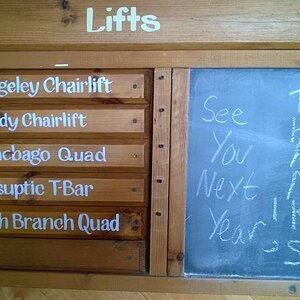 Lifts
geley Chairlift
dy Chairlift
cbago Quad
suptic T-Bar
h Branch Quad
See
You
Next
Year